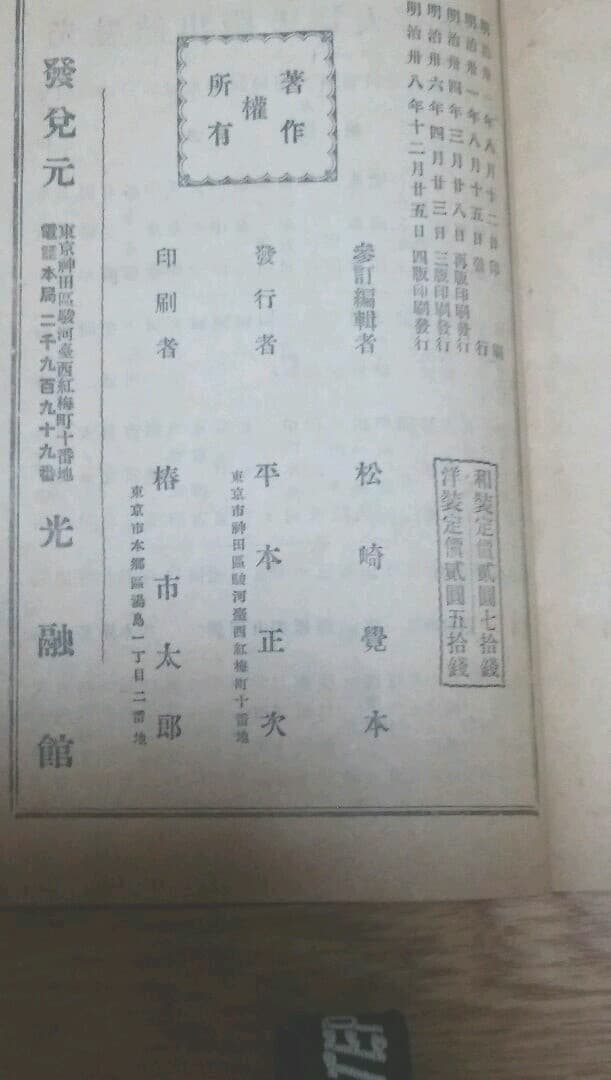 明治卅一年八月十二日印刷
明治卅一年八月十五日發行
明治卅四年三月廿八日再版印刷發行
明治卅六年四月廿三日三版印刷發行
明治卅八年十二月廿五日四版印刷發行
和裝定價貳圓七拾錢
洋裝定價貳圓五拾錢
著作
權
所有
參訂編輯者 松崎覺本
發行者 平本正次
東京市神田區駿河臺西紅梅町十番地
印刷者 椿市太郎
東京市本郷區湯島一丁目二番地
發兌元
東京神田區駿河臺西紅梅町十番地
電話本局二千九百九十九番
光融館